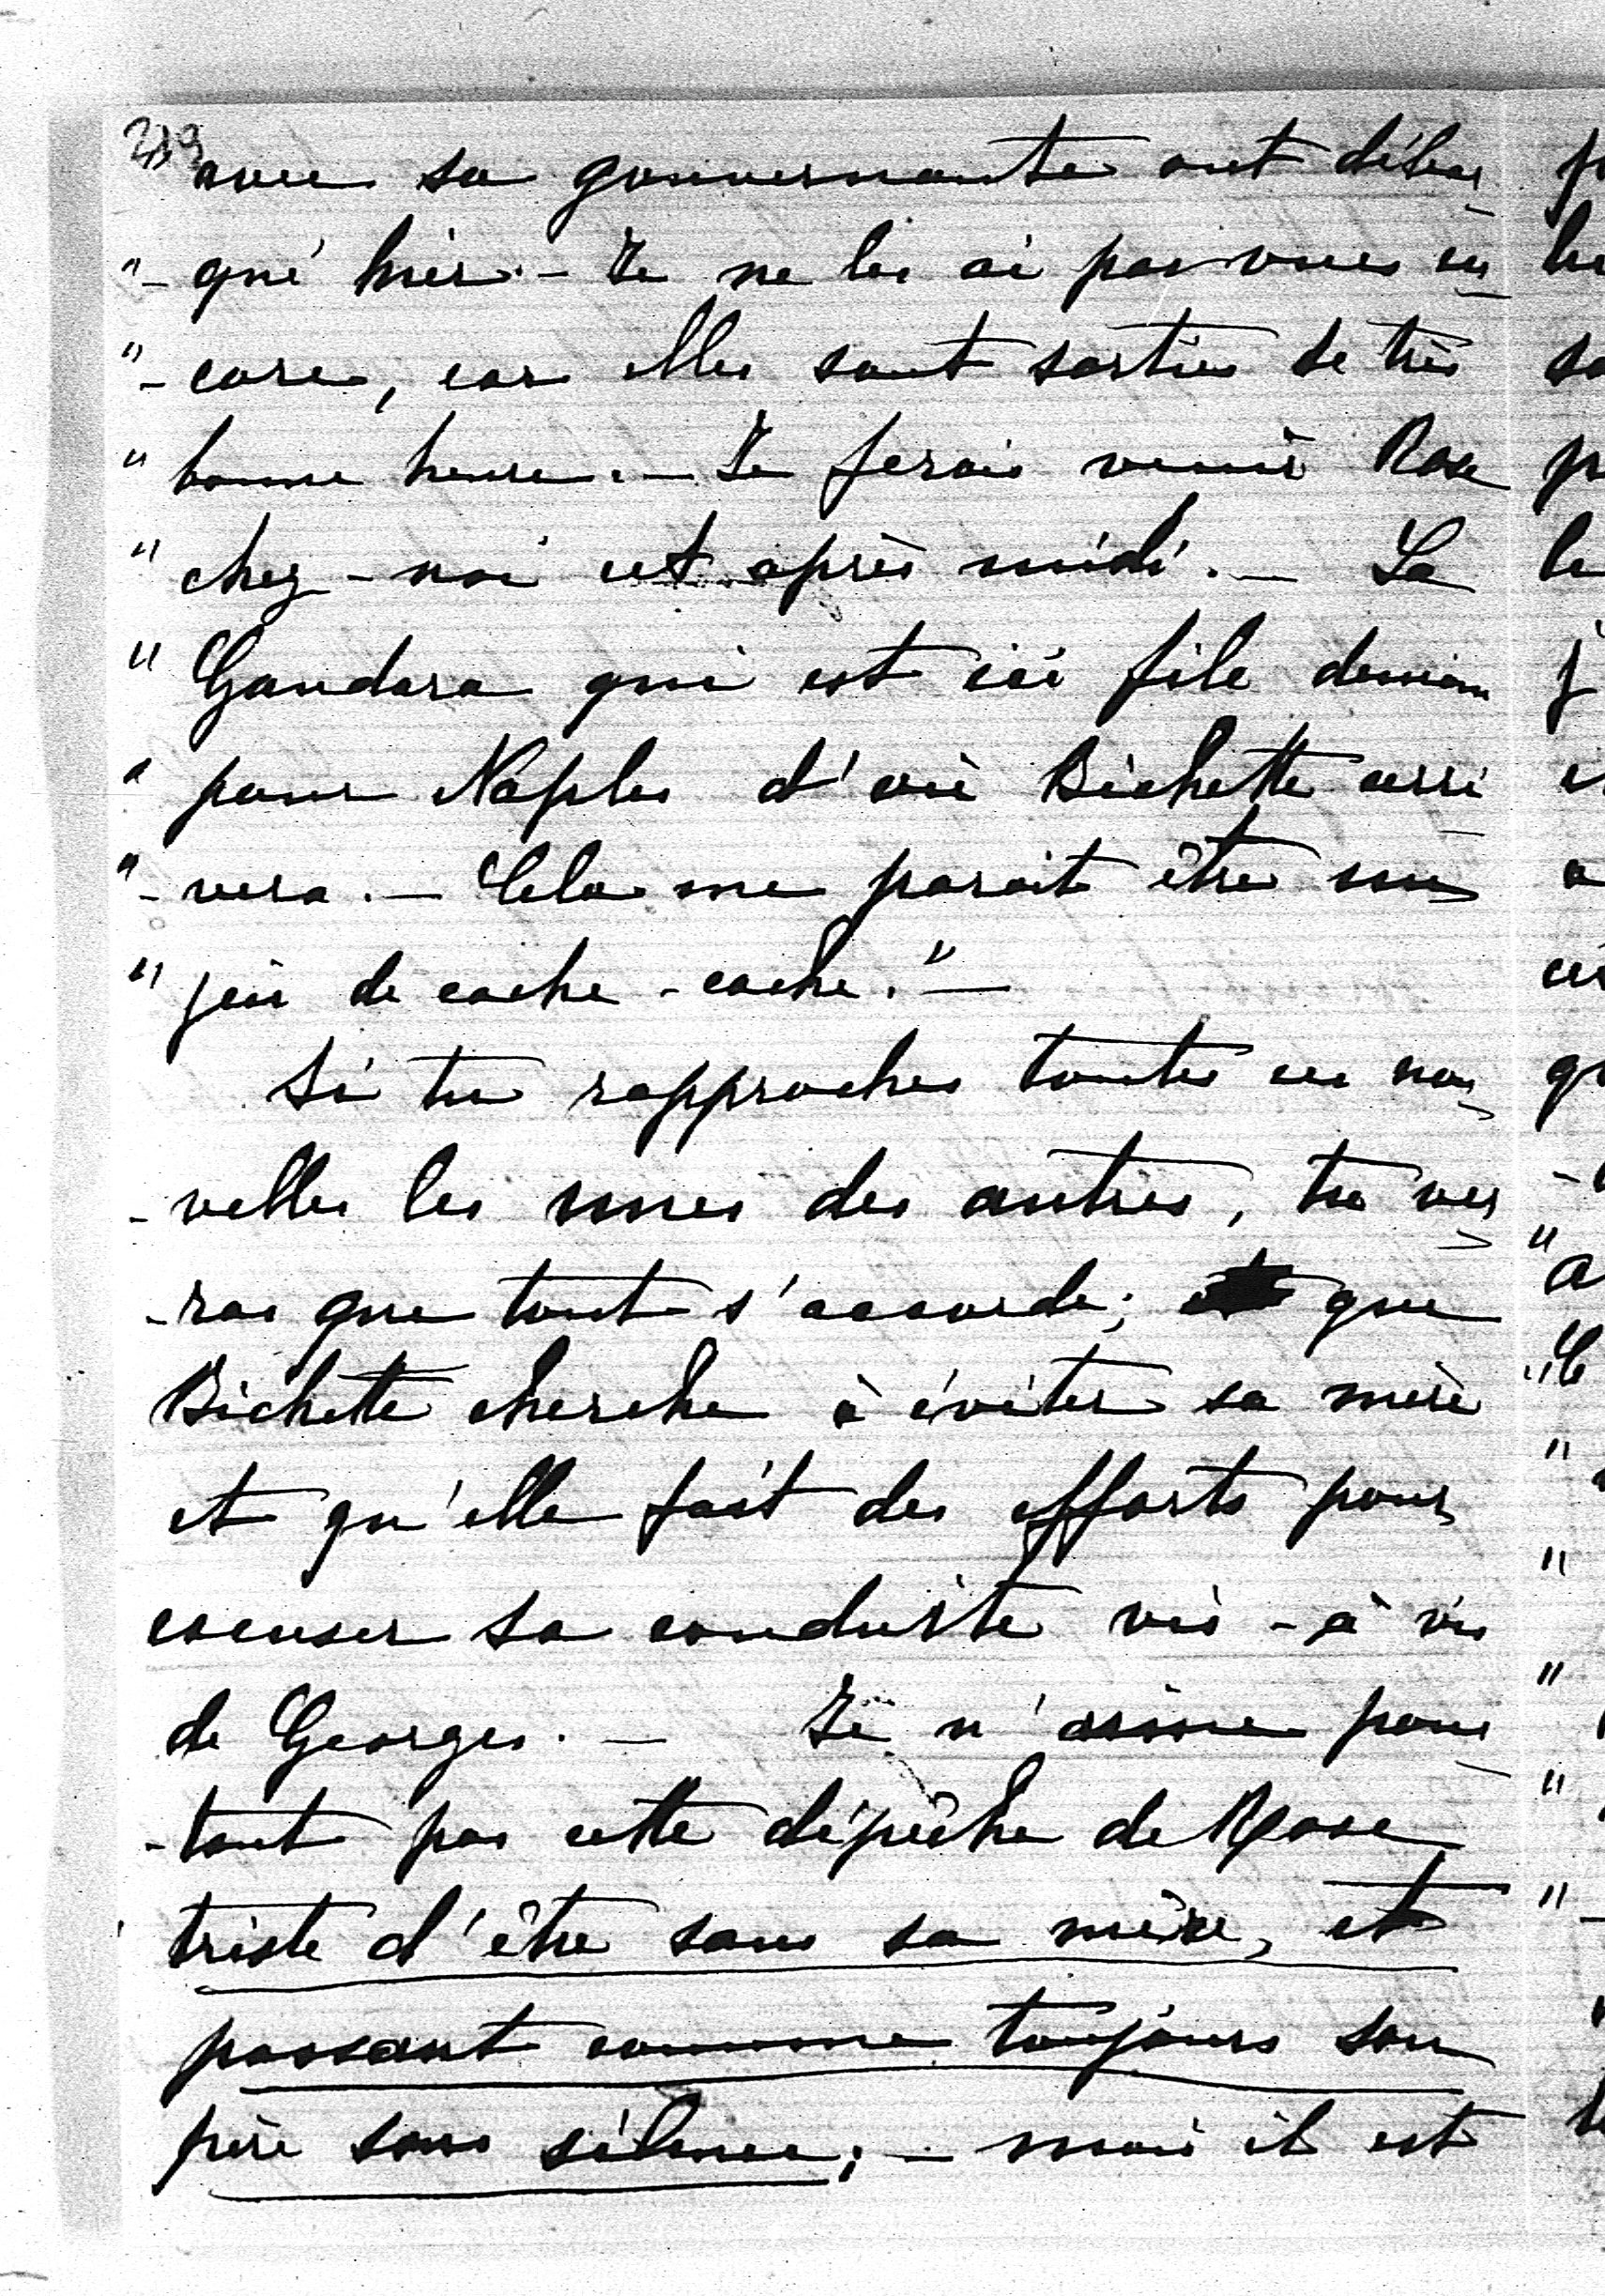 289
avec sa gouvernante ont débar
"-qué hier. - Je ne les ai pas vues en
"-core, car elles sont sorties de très
" bonne heure. - Je ferais venir Rose
" chez-moi cet après midi. - La
" Gandara qui est ici file demain
" pour Naples d'où Bichette arri
"-vera. - Cela me parait être un
" jeu de cache-cache." -
Si tu rapproches toutes ces nou
-velles les unes des autres, tu ver
-ras que tout s'accorde; que
Bichette cherche à éviter sa mère
et qu'elle fait des efforts pour
excuser sa conduite vis-à vis
de Georges. - Je n'aime pour
-tant pas cette dépêche de Rose
triste d'être sans sa mère, et
passant comme toujours son
père sous silence; - mais il est